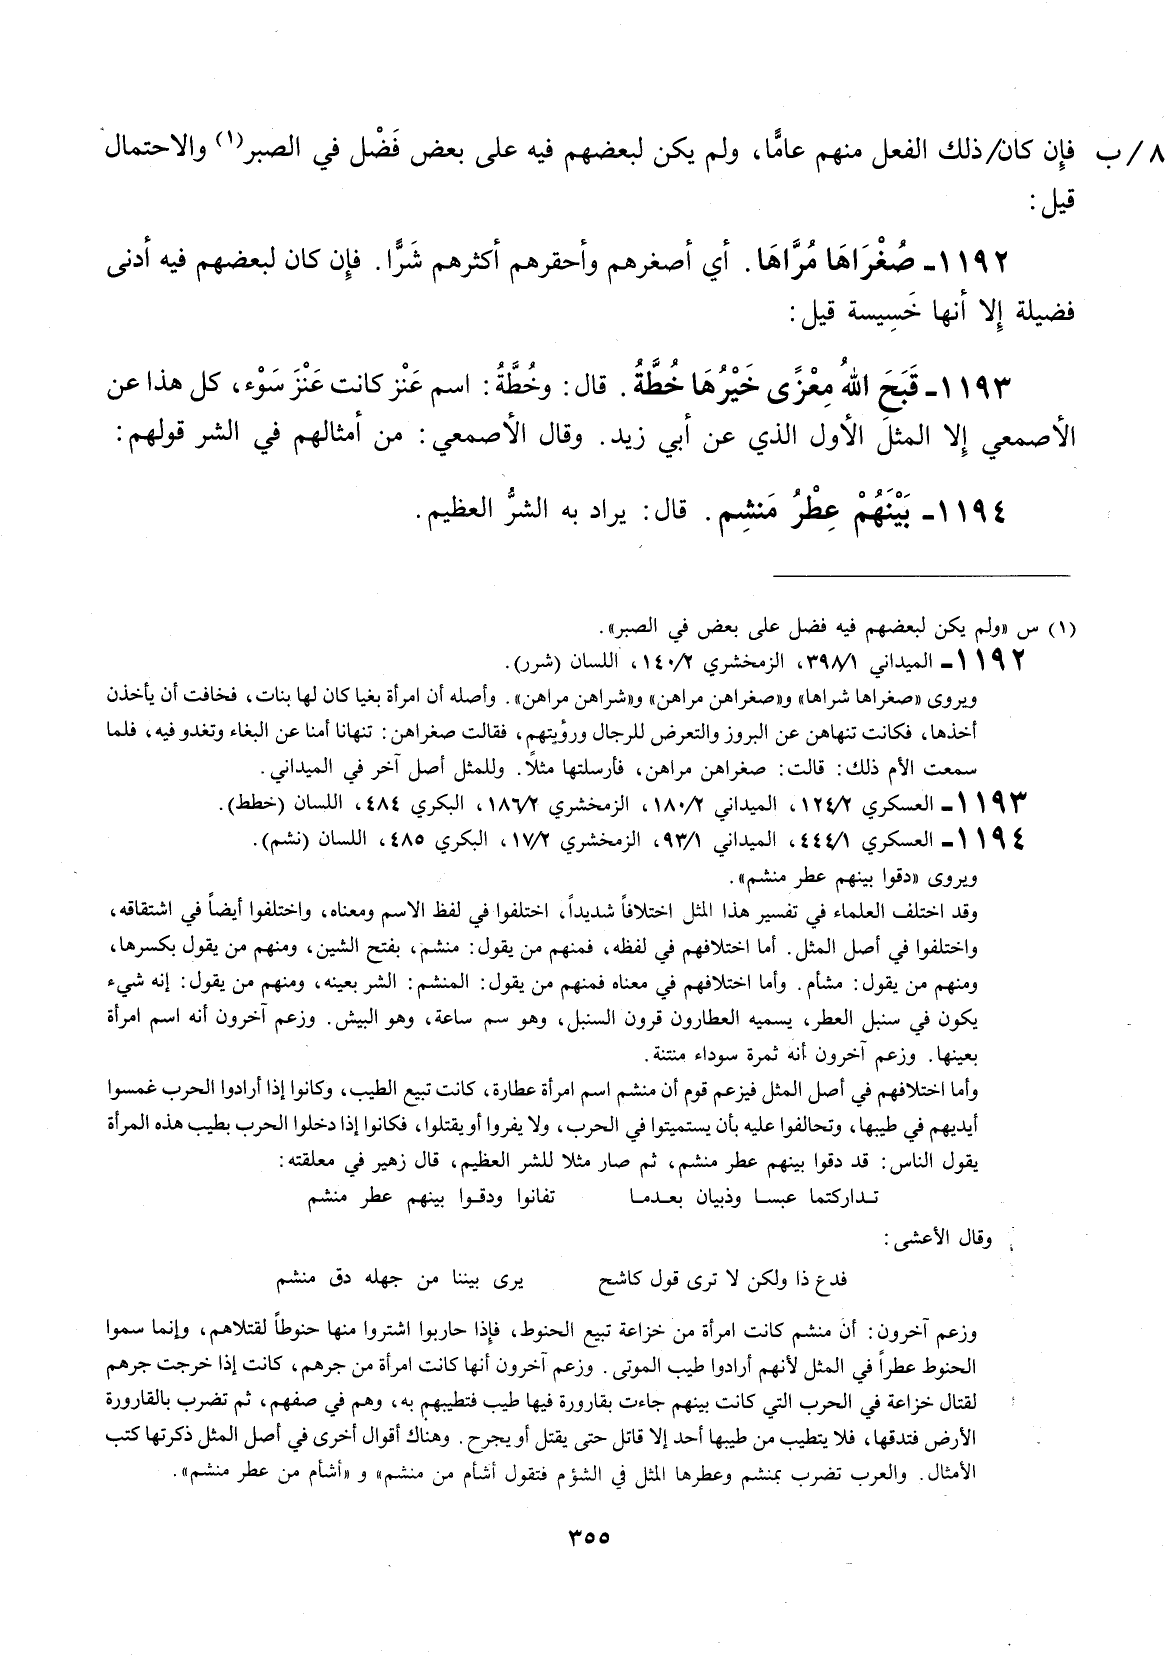 ٨/ب فإن كان/ذلك الفعل منهم عامًّا، ولم يكن لبعضهم فيه على بعض فَضْل في الصبر(١) والاحتمال
قيل:
١١٩٢ـ صُغْرَاهَا مُرَّاهَا. أي أصغرهم وأحقرهم أكثرهم شَرًّا. فإن كان لبعضهم فيه أدنى
فضيلة إلا أنها خَسِيسة قيل:
١١٩٣ـ قَبَحَ اللهُ مِعْزًى خَيْرُهَا خُطَّةُ. قال: وخُطَّةُ: اسم عَنْز كانت عَنْزَ سَوْء، كل هذا عن
الأصمعي إلا المثل الأول الذي عن أبي زيد. وقال الأصمعي: من أمثالهم في الشر قولهم:
١١٩٤ـ بَيْنَهُمْ عِطْرُ مَنشِم. قال: يراد به الشرُّ العظيم.
(١) س «ولم يكن لبعضهم فيه فضل على بعض في الصبر».
١١٩٢ـ الميداني ٣٩٨/١، الزمخشري ١٤٠/٢، اللسان (شرر).
ويروى «صغراها شراها» و«صغراهن مراهن» و«شراهن مراهن». وأصله أن امرأة بغيا كان لها بنات، فخافت أن يأخذن
أخذها، فكانت تنهاهن عن البروز والتعرض للرجال ورؤيتهم، فقالت صغراهن: تنهانا أمنا عن البغاء وتغدو فيه، فلما
سمعت الأم ذلك: قالت: صغراهن مراهن، فأرسلتها مثلاً. وللمثل أصل آخر في الميداني.
١١٩٣ـ العسكري ١٢٤/٢، الميداني ١٨٠/٢، الزمخشري ١٨٦/٢، البكري ٤٨٤، اللسان (خطط).
١١٩٤ـ العسكري ٤٤٤/١، الميداني ٩٣/١، الزمخشري ١٧/٢، البكري ٤٨٥، اللسان (نشم).
ويروى «دقوا بينهم عطر منشم».
وقد اختلف العلماء في تفسير هذا المثل اختلافاً شديداً، اختلفوا في لفظ الاسم ومعناه، واختلفوا أيضاً في اشتقاقه،
واختلفوا في أصل المثل. أما اختلافهم في لفظه، فمنهم من يقول: منشم، بفتح الشين، ومنهم من يقول بكسرها،
ومنهم من يقول: مشأم. وأما اختلافهم في معناه فمنهم من يقول: المنشم: الشر بعينه، ومنهم من يقول: إنه شيء
يكون في سنبل العطر، يسميه العطارون قرون السنبل، وهو سم ساعة، وهو البيش. وزعم آخرون أنه اسم امرأة
بعينها. وزعم آخرون أنه ثمرة سوداء منتنة.
وأما اختلافهم في أصل المثل فيزعم قوم أن منشم اسم امرأة عطارة، كانت تبيع الطيب، وكانوا إذا أرادوا الحرب غمسوا
أيديهم في طيبها، وتحالفوا عليه بأن يستميتوا في الحرب، ولا يفروا أو يقتلوا، فكانوا إذا دخلوا الحرب بطيب هذه المرأة
يقول الناس: قد دقوا بينهم عطر منشم، ثم صار مثلا للشر العظيم، قال زهير في معلقته:
تـداركتما عبسـا وذبيان بعـدمـا تفانوا ودقـوا بينهم عطر منشم
وقال الأعشى:
فدع ذا ولكن لا ترى قول كاشح يرى بيننا من جهله دق منشم
وزعم آخرون: أن منشم كانت امرأة من خزاعة تبيع الحنوط، فإذا حاربوا اشتروا منها حنوطاً لقتلاهم، وإنما سموا
الحنوط عطراً في المثل لأنهم أرادوا طيب الموتى. وزعم آخرون أنها كانت امرأة من جرهم، كانت إذا خرجت جرهم
لقتال خزاعة في الحرب التي كانت بينهم جاءت بقارورة فيها طيب فتطيبهم به، وهم في صفهم، ثم تضرب بالقارورة
الأرض فتدقها، فلا يتطيب من طيبها أحد إلا قاتل حتى يقتل أو يجرح. وهناك أقوال أخرى في أصل المثل ذكرتها كتب
الأمثال. والعرب تضرب بمنشم وعطرها المثل في الشؤم فتقول أشأم من منشم» و «أشأم من عطر منشم».
٣٥٥